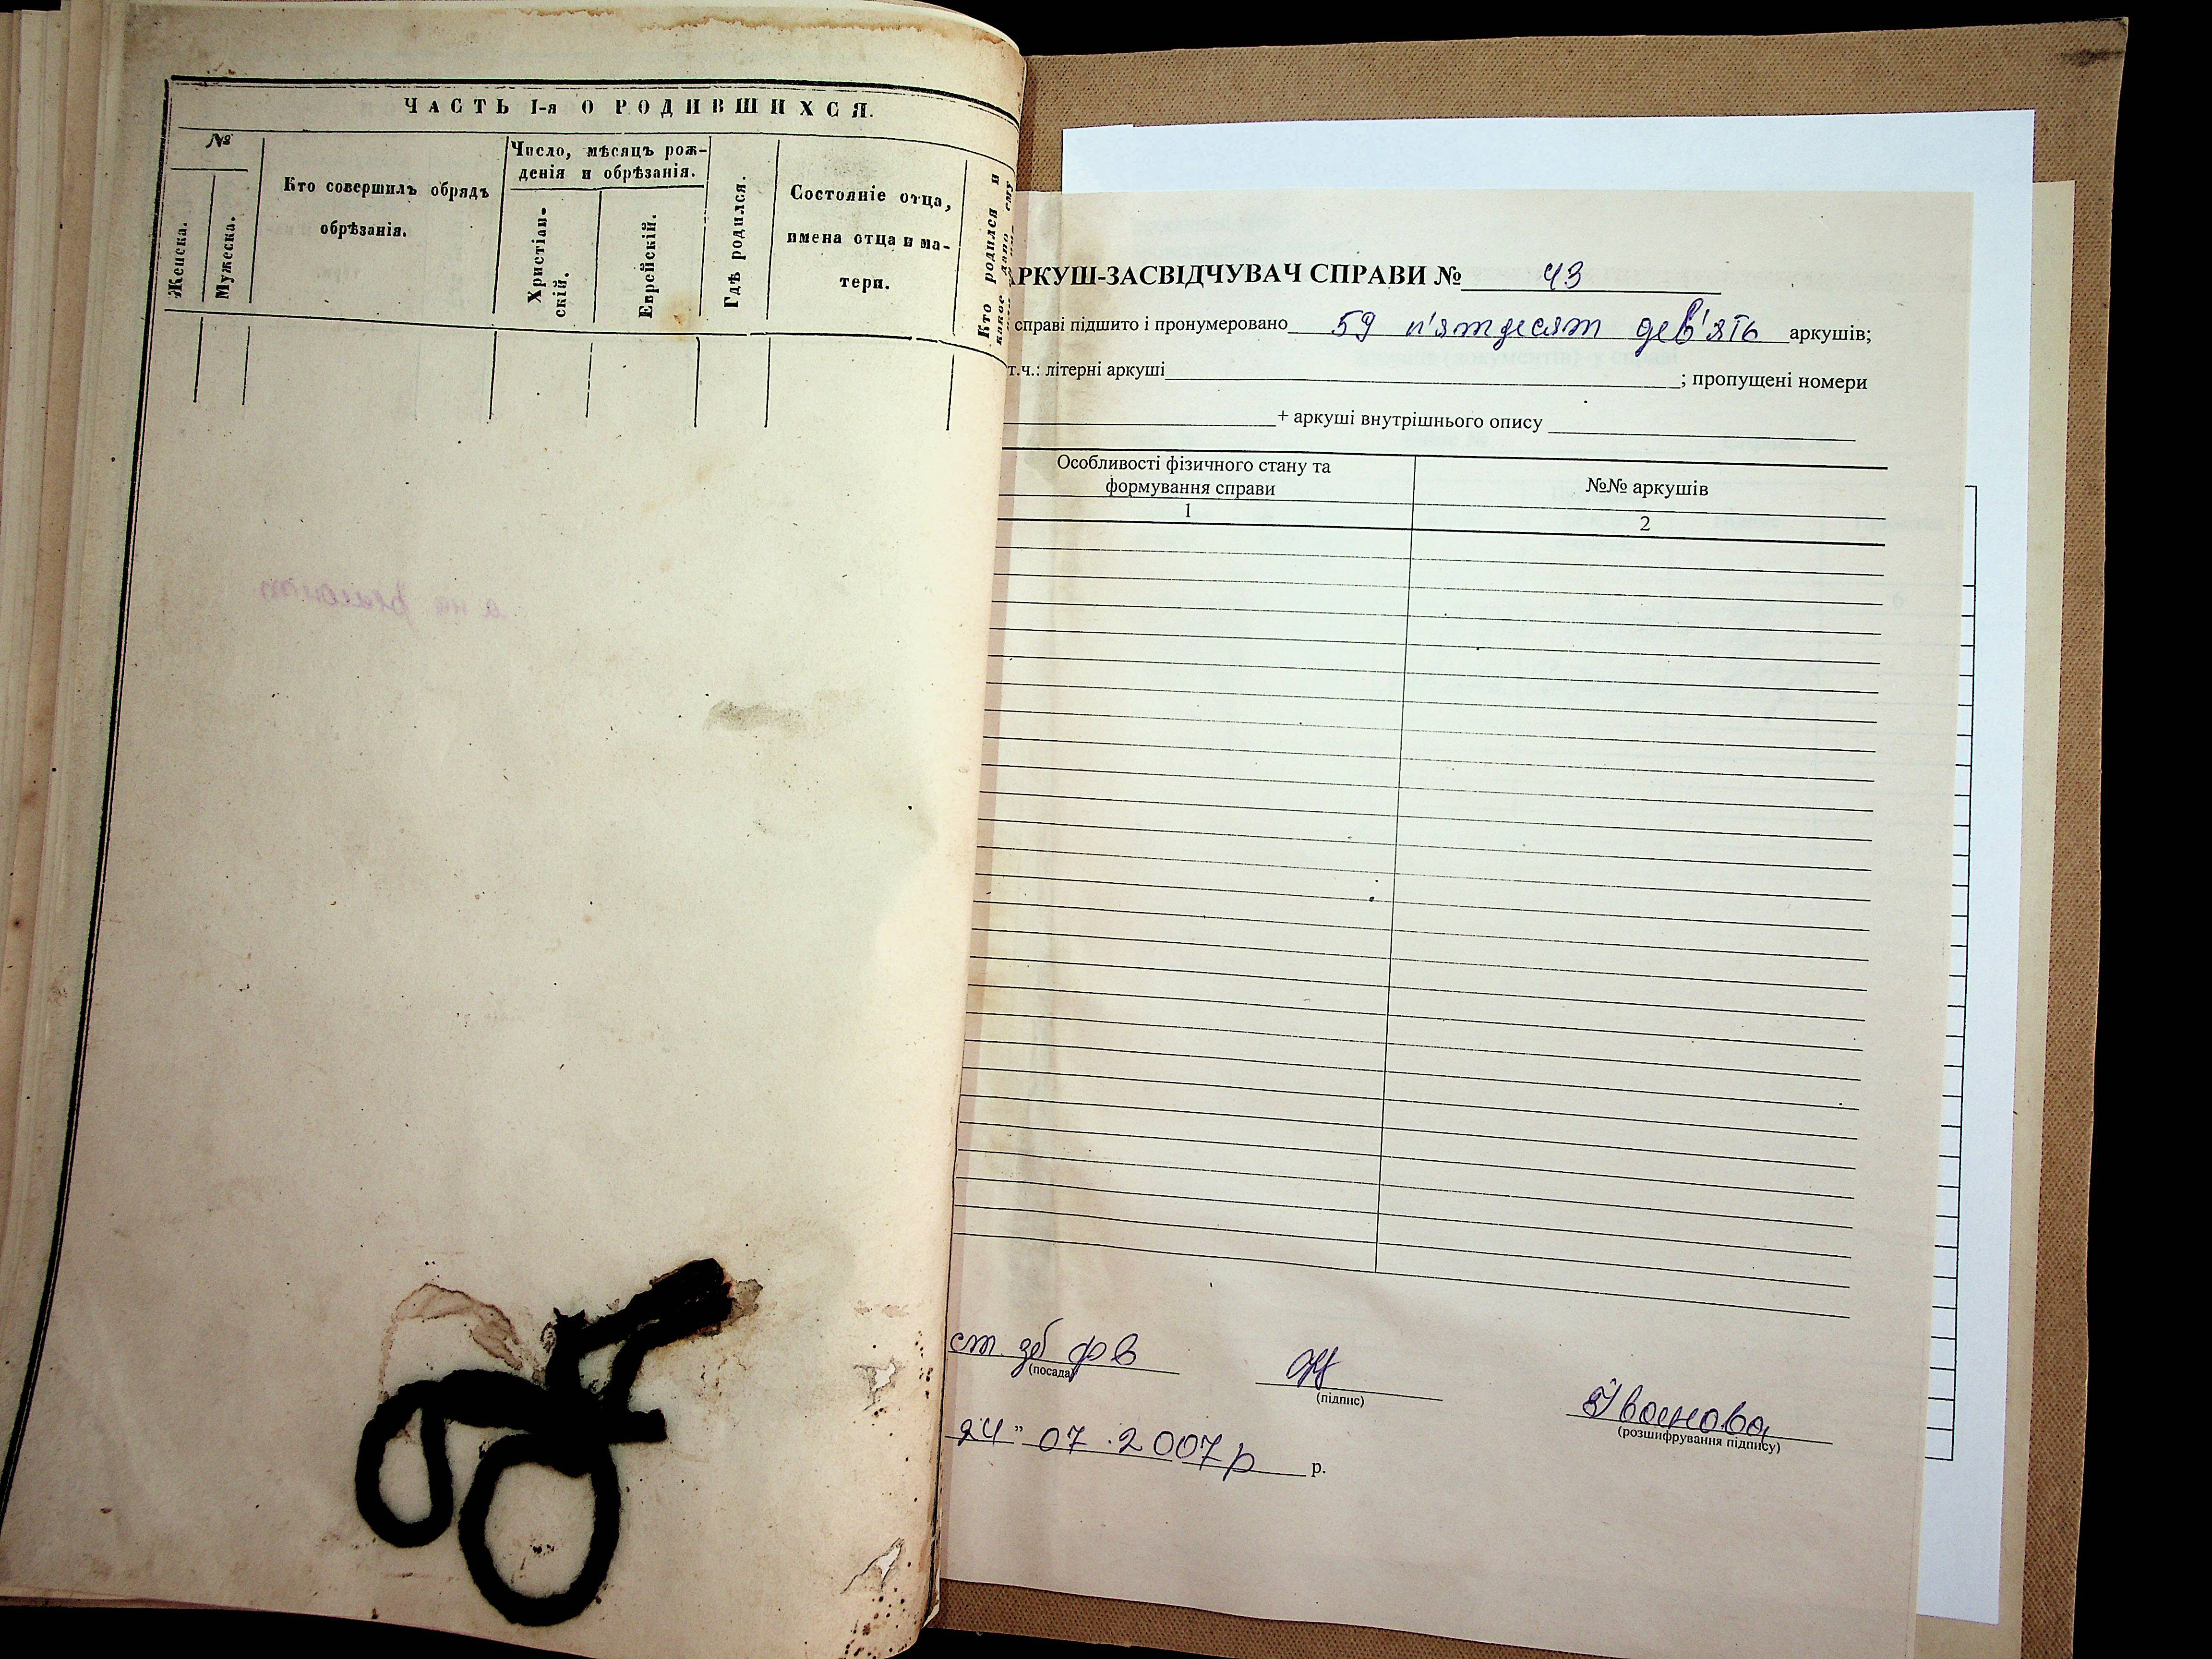 ЧАСТЬ I-я О РОДИВШИХСЯ.
№
Женска.
Мужеска.
Кто совершилъ обрядъ
обрѣзанія.
Число, мѣсяцъ рож-
денія и обрѣзанія.
Христіан-
скій.
Еврейскій.
Гдѣ родился.
Состояніе отца,
имена отца и ма-
тери.
Кто родился и
какое дано ему
АРКУШ-ЗАСВІДЧУВАЧ СПРАВИ № 43
справі підшито і пронумеровано 59 п'ятдесят дев'ять аркушів;
т.ч.: літерні аркуші ; пропущені номери
+ аркуші внутрішнього опису
Особливості фізичного стану та
формування справи
№№ аркушів
1
2
ст. зб фв
(посада)
(підпис)
Іванова
(розшифрування підпису)
24 " 07. 2007р р.